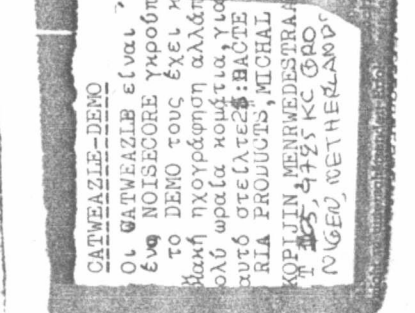 CATWEAZLE-DEMO
Οι CATWEAZLE είναι
ένα NOISECORE γκρούπ
το DEMO τους έχει κ
κακή ηχογράφηση αλλά
ολύ ωραία κομάτια, για
αυτό στείλτε 2$:BACTE
RIA PRODUCTS, MICHAL
KOPIJIN MENRWEDESTRAA
T 105, 9725 KC GRO
NINGEN, NETHERLANDS